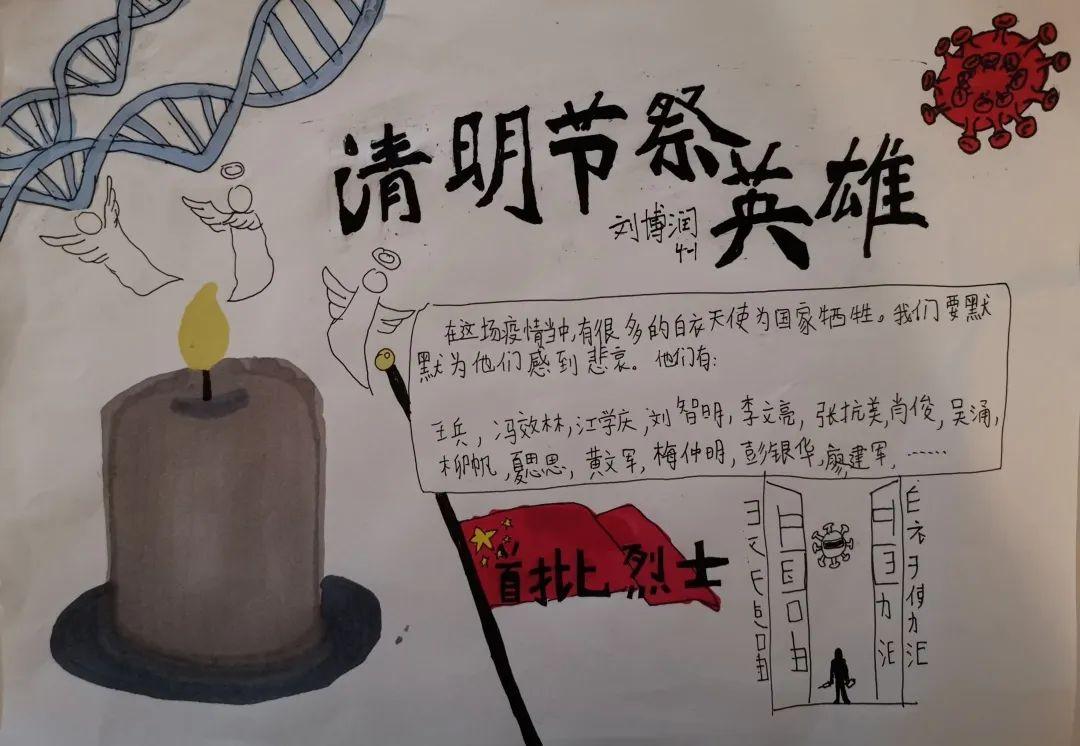 清明节祭英雄
刘博润
4-1
在这场疫情当中,有很多的白衣天使为国家牺牲。我们要默
默为他们感到悲哀。他们有:
王兵,冯效林,江学庆,刘智明,李文亮,张抗美,肖俊,吴涌,
柳帆,夏思思,黄文军,梅仲明,彭银华,廖建军,……
首批烈士